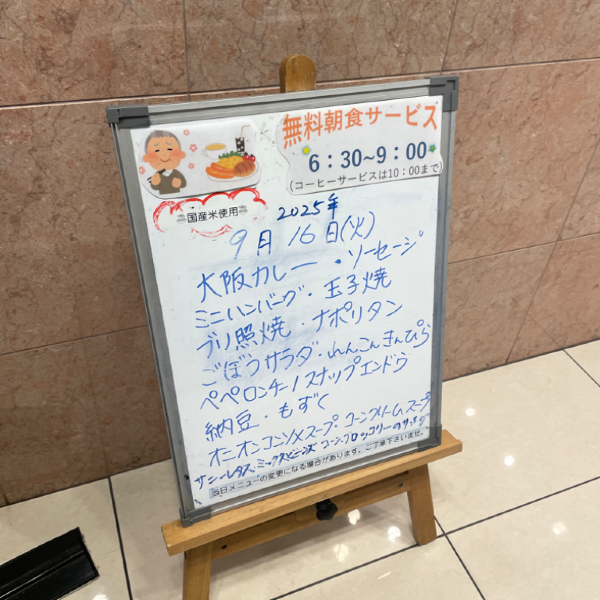 無料朝食サービス
6：30~9：00
(コーヒーサービスは10：00まで)
国産米使用
2025年
9月16日(火)
大阪カレー・ソーセージ
ミニハンバーグ・玉子焼
ブリ照焼・ナポリタン
ごぼうサラダ・れんこんきんぴら
ペペロンチーノスナップエンドウ
納豆・もずく
オニオンコンソメスープ・コーンクリームスープ
サニーレタス・ミックスビーンズ コーン・ブロッコリーのサラダ
当日メニューの変更になる場合があります。ご了承下さいませ。